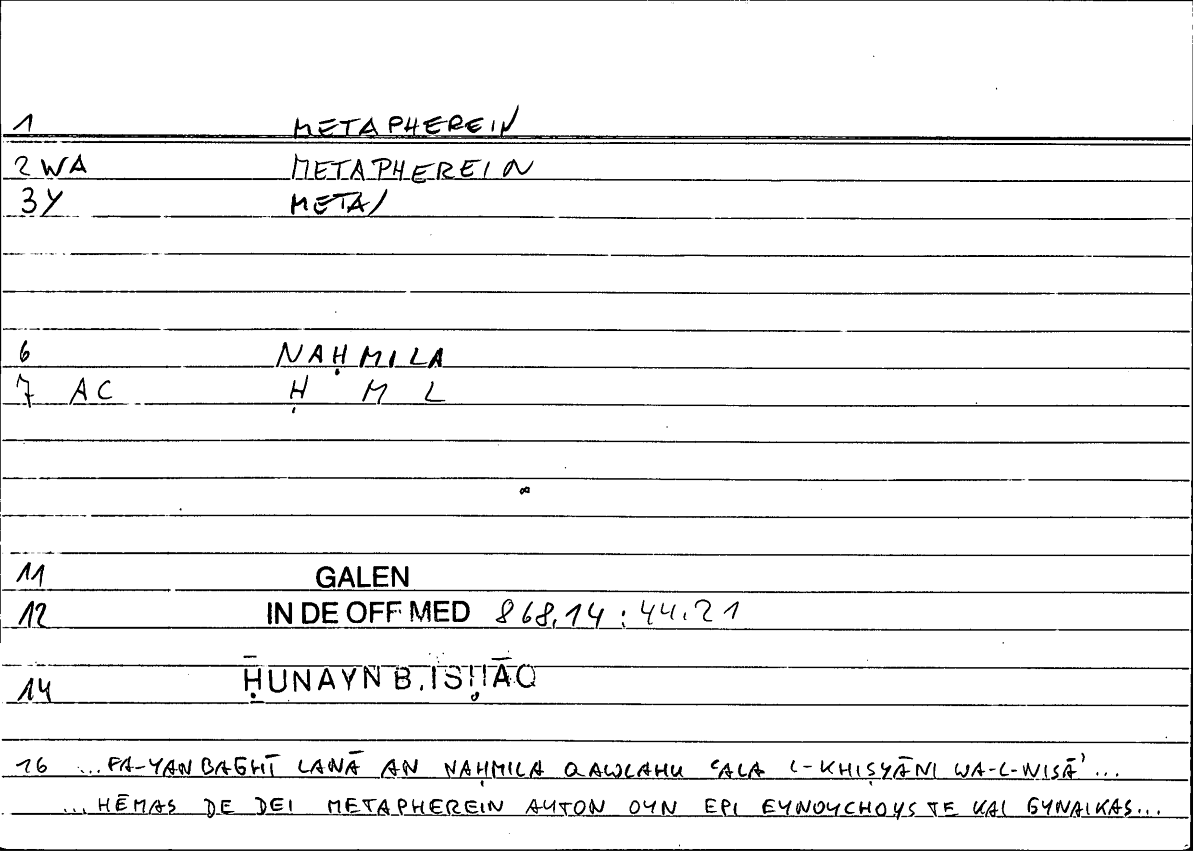 1 METAPHEREIN
2 WA METAPHEREIN
3 Y META/
6 NAḤMILA
7 AC Ḥ M L
11 GALEN
12 IN DE OFF MED 868,14 : 44.21
14 ḤUNAYN B. ISḤĀQ
16 ...FA-YANBAGHĪ LANĀ AN NAḤMILA QAWLAHU ʿALA L-KHIṢYĀNI WA-L-NISĀʾ...
...HĒMAS DE DEI METAPHEREIN AYTON OYN EPI EYNOYCHOYS TE KAI GYNAIKAS...